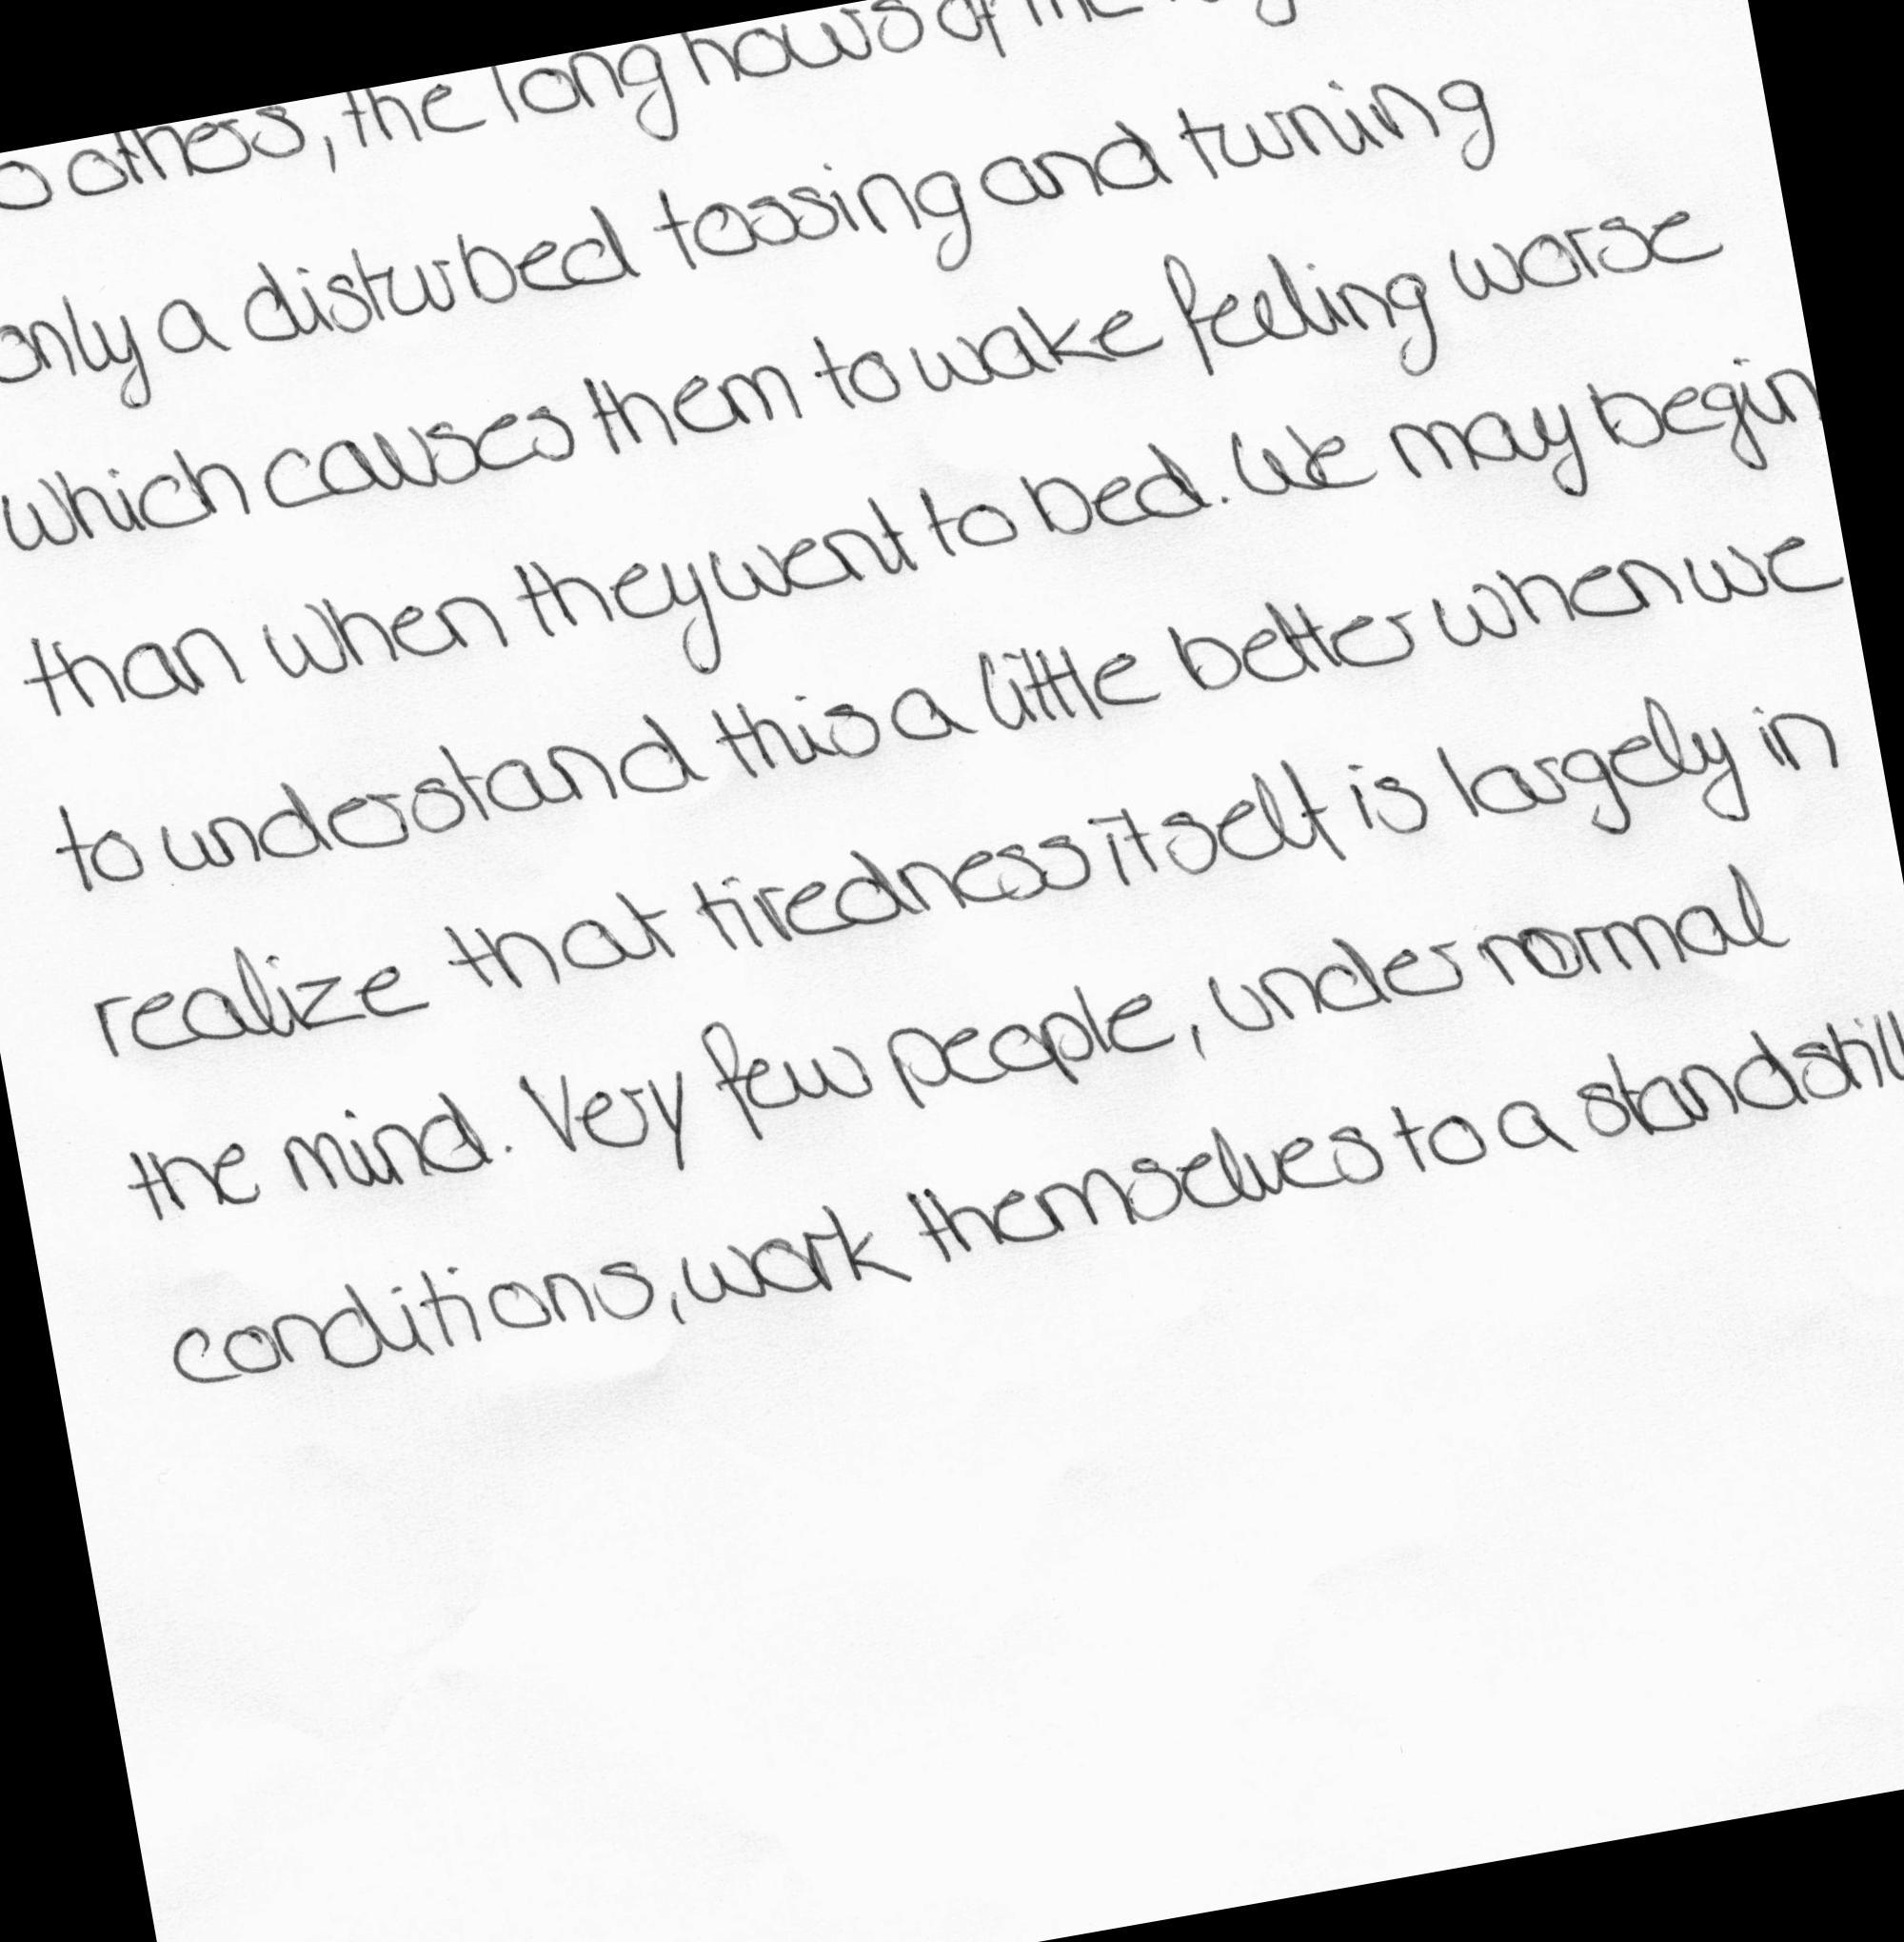 others, the long hours of the
only a disturbed tossing and turning
which causes them to wake feeling worse
than when they went to bed. We may begin
to understand this a little better when we
realize that tiredness itself is largely in
the mind. Very few people, under normal
conditions, work themselves to a standstill